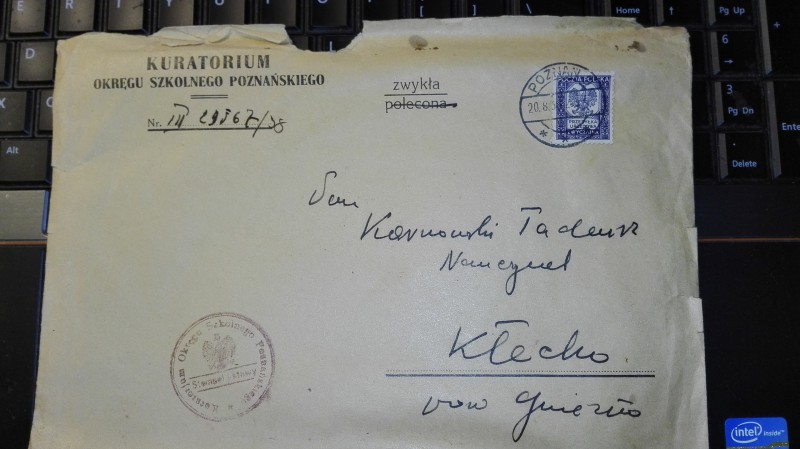 KURATORIUM
OKRĘGU SZKOLNEGO POZNAŃSKIEGO
Nr. III 29567/38
zwykła
polecona
POZNAŃ
20.8.
POCZTA POLSKA
Pan
Karnowski Tadeusz
Nauczyciel
Kłecko
pow Gniezno
Kuratorjum Okręgu Szkolnego Poznańskiego
Stempel
Home
Pg Up
6
3
Pg Dn
Enter
Delete
Alt
intel inside